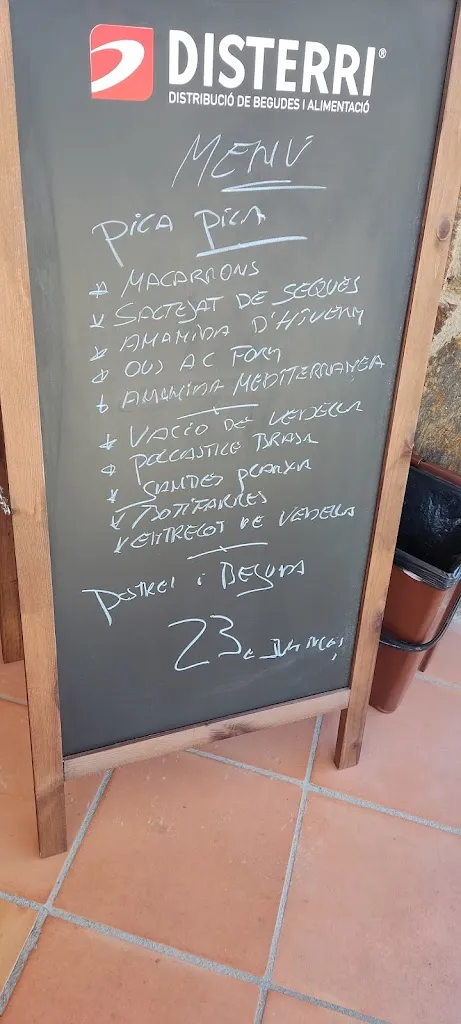 DISTERRI®
DISTRIBUCIÓ DE BEGUDES I ALIMENTACIÓ
MENÚ
PICA PICA
MACARRONS
SALTEJAT DE SEQUES
AMANIDA D'HIVERN
OUS AL FORN
AMANIDA MEDITERRANEA
VACIO DE VEDELLA
POLLASTRE BRASA
PLANXA
BOTIFARRES
ENTRECOT DE VEDELLA
POSTRE I BEGUDA
23